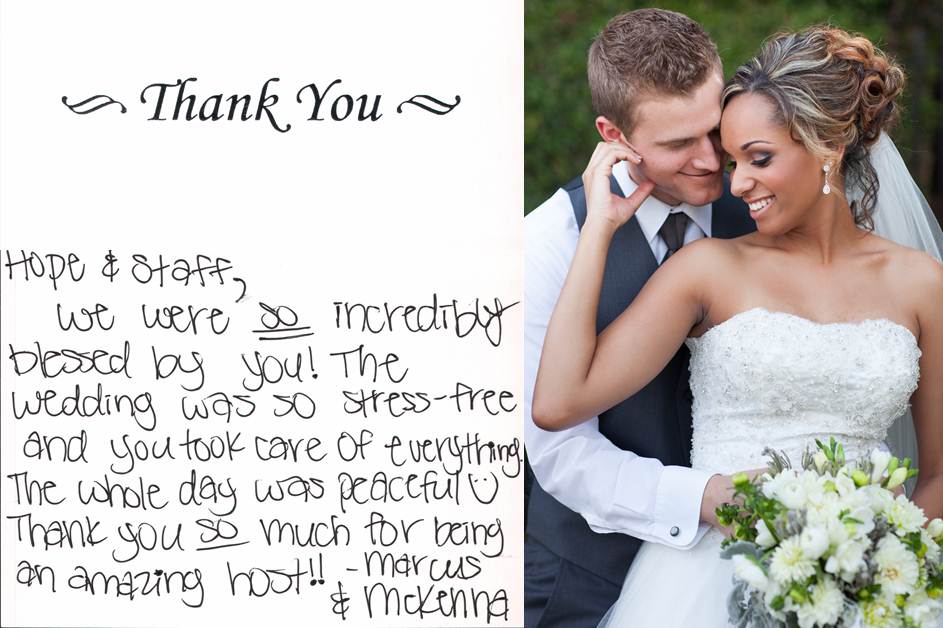 Thank You
Hope & Staff,
we were so incredibly
blessed by you! The
wedding was so stress-free
and you took care of everything.
The whole day was peaceful
Thank you so much for being
an amazing host!! - marcus
& McKenna